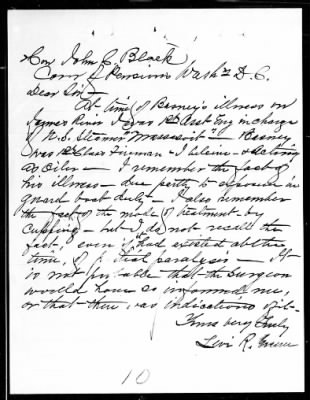 Hon John C. Black
Comr of Pensions Wash'n D.C.
Dear Sir
At time of Beeney's illness on
James River I was 1st Asst Eng in charge
of U.S. Steamer Massasoit - Beeney
was 1st Class Fireman - I believe - & acting
as Oiler - I remember the fact of
his illness - due partly to exposure in
guard boat duty - I also remember
the fact of the mode of treatment by
cupping - but I do not recall the
fact, even if had existed at the
time, of partial paralysis - It
is not probable that the surgeon
would have so informed me,
or that there was indications of it -
Yours very truly
Levi R. Greene
10